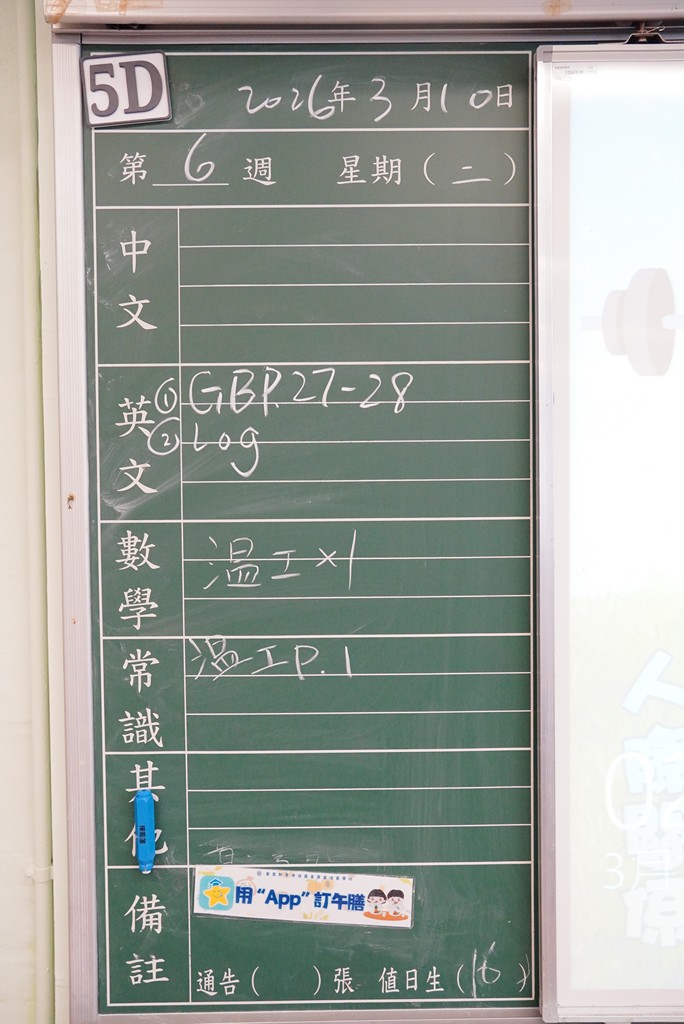 5D
2026年3月10日
第6週 星期(二)
中文
英文
① GBP.27-28
② Log
數學
溫工×1
常識
溫工P.1
其他
備註
用“App”訂午膳
通告( )張 值日生(16)
人際關係
3月